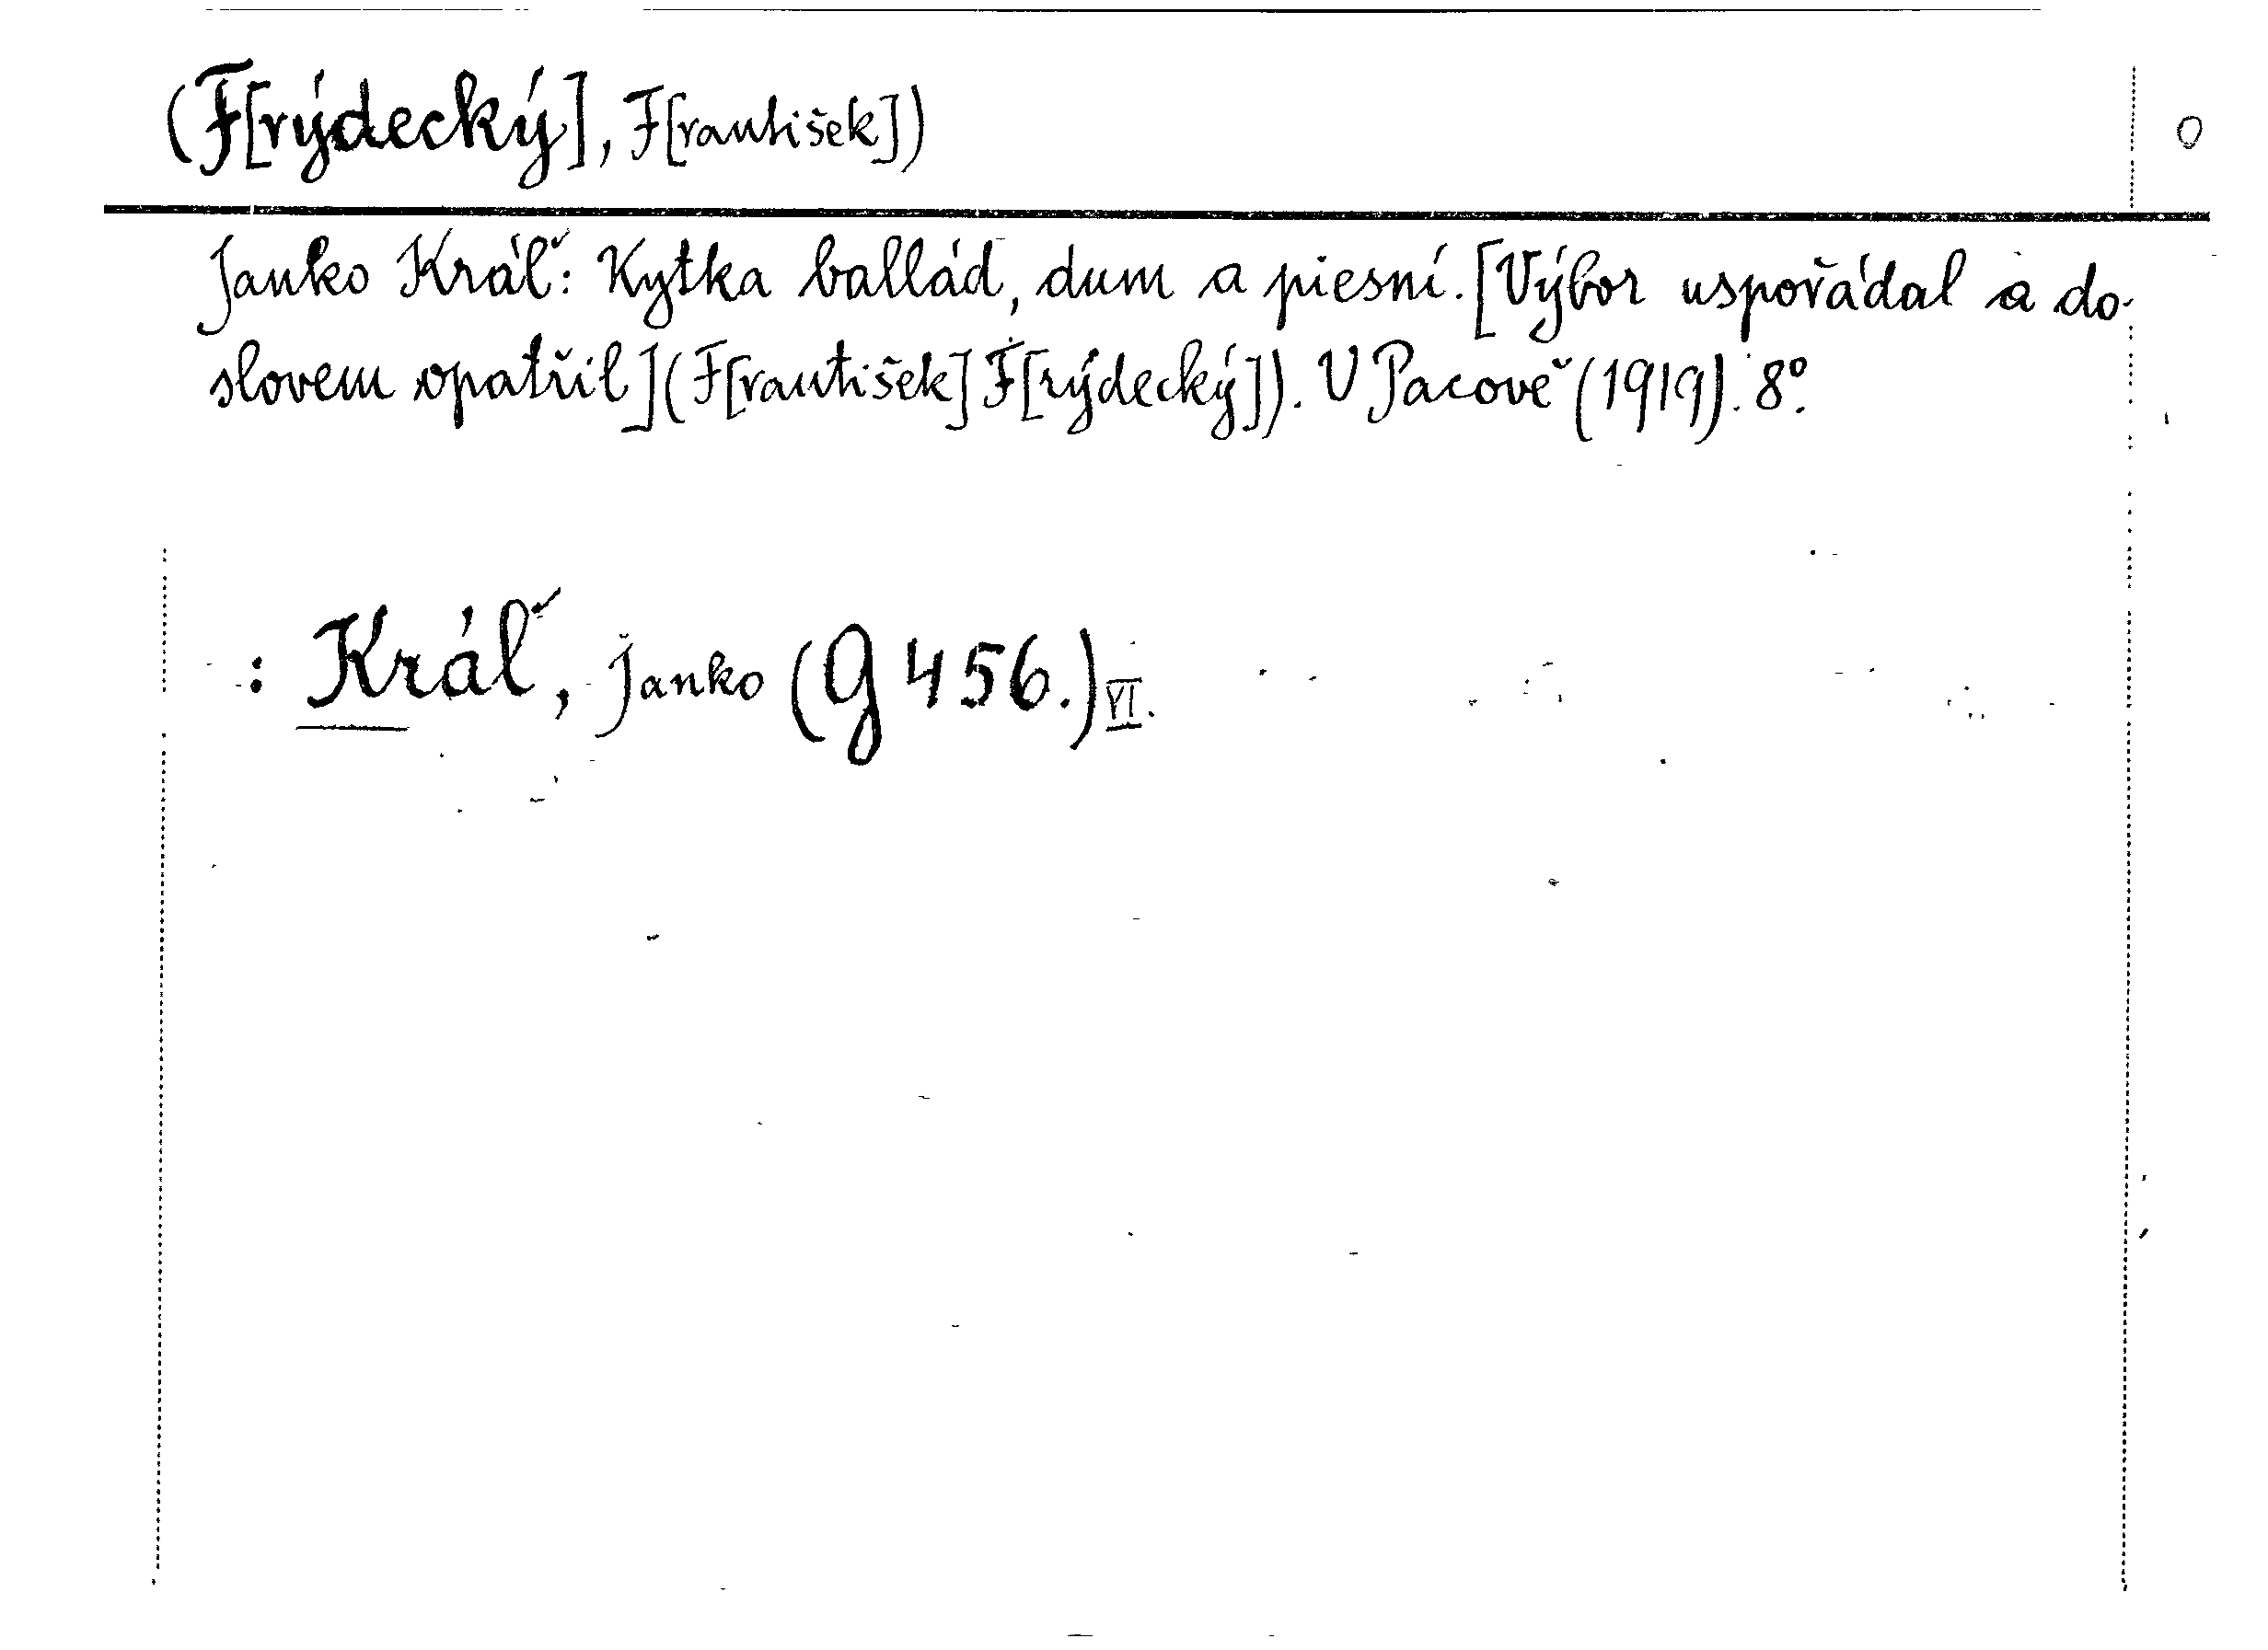 (F[rýdecký], F[rantišek])
O
Janko Kráľ: Kytka ballád, dum a piesní. [Výbor uspořádal a do-
slovem opatřil] (F[rantišek] F[rýdecký]). V Pacově (1919). 8°.
: Kráľ, Janko (G 456.) VI.